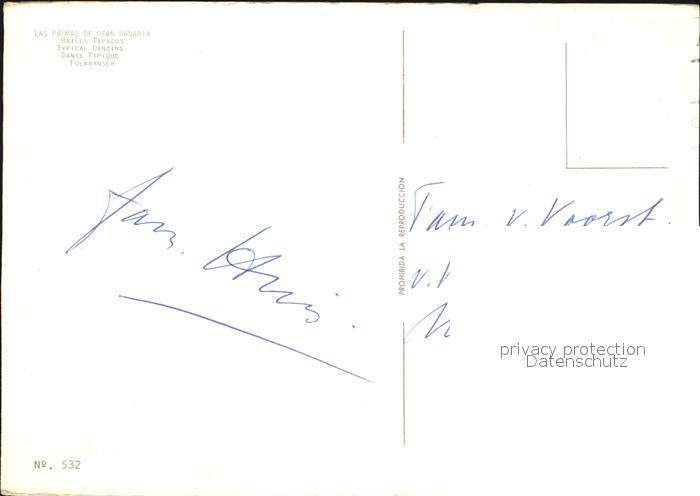 LAS PALMAS DE GRAN CANARIA
BAILES TIPICOS
TYPICAL DANCING
DANSE TIPIQUE
FOLKDANSER
Fam.
PROHIBIDA LA REPRODUCCION
Fam v. Voorst.
v.
privacy protection
Datenschutz
Nº. 532